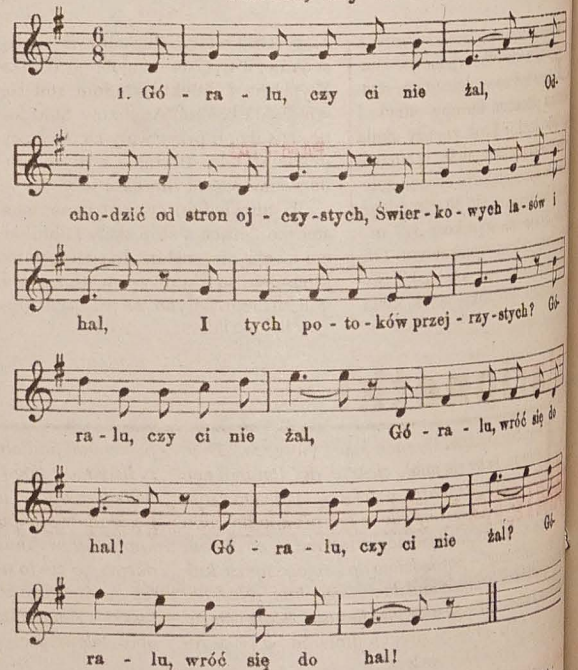 1. Gó - ra - lu, czy ci nie żal, Od-
cho-dzić od stron oj - czy-stych, Świer-ko-wych la-sów i
hal, I tych po-to-ków przej-rzy-stych? Gó-
ra-lu, czy ci nie żal, Gó-ra-lu, wróć się do
hal! Gó-ra-lu, czy ci nie żal? Gó-
ra - lu, wróć się do hal!